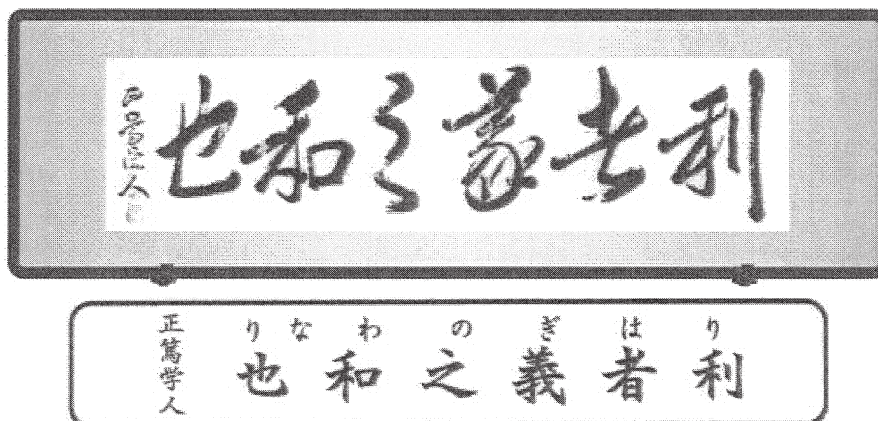 利者義之和也
正篤学人
りはぎのわなり
利者義之和也
正篤学人